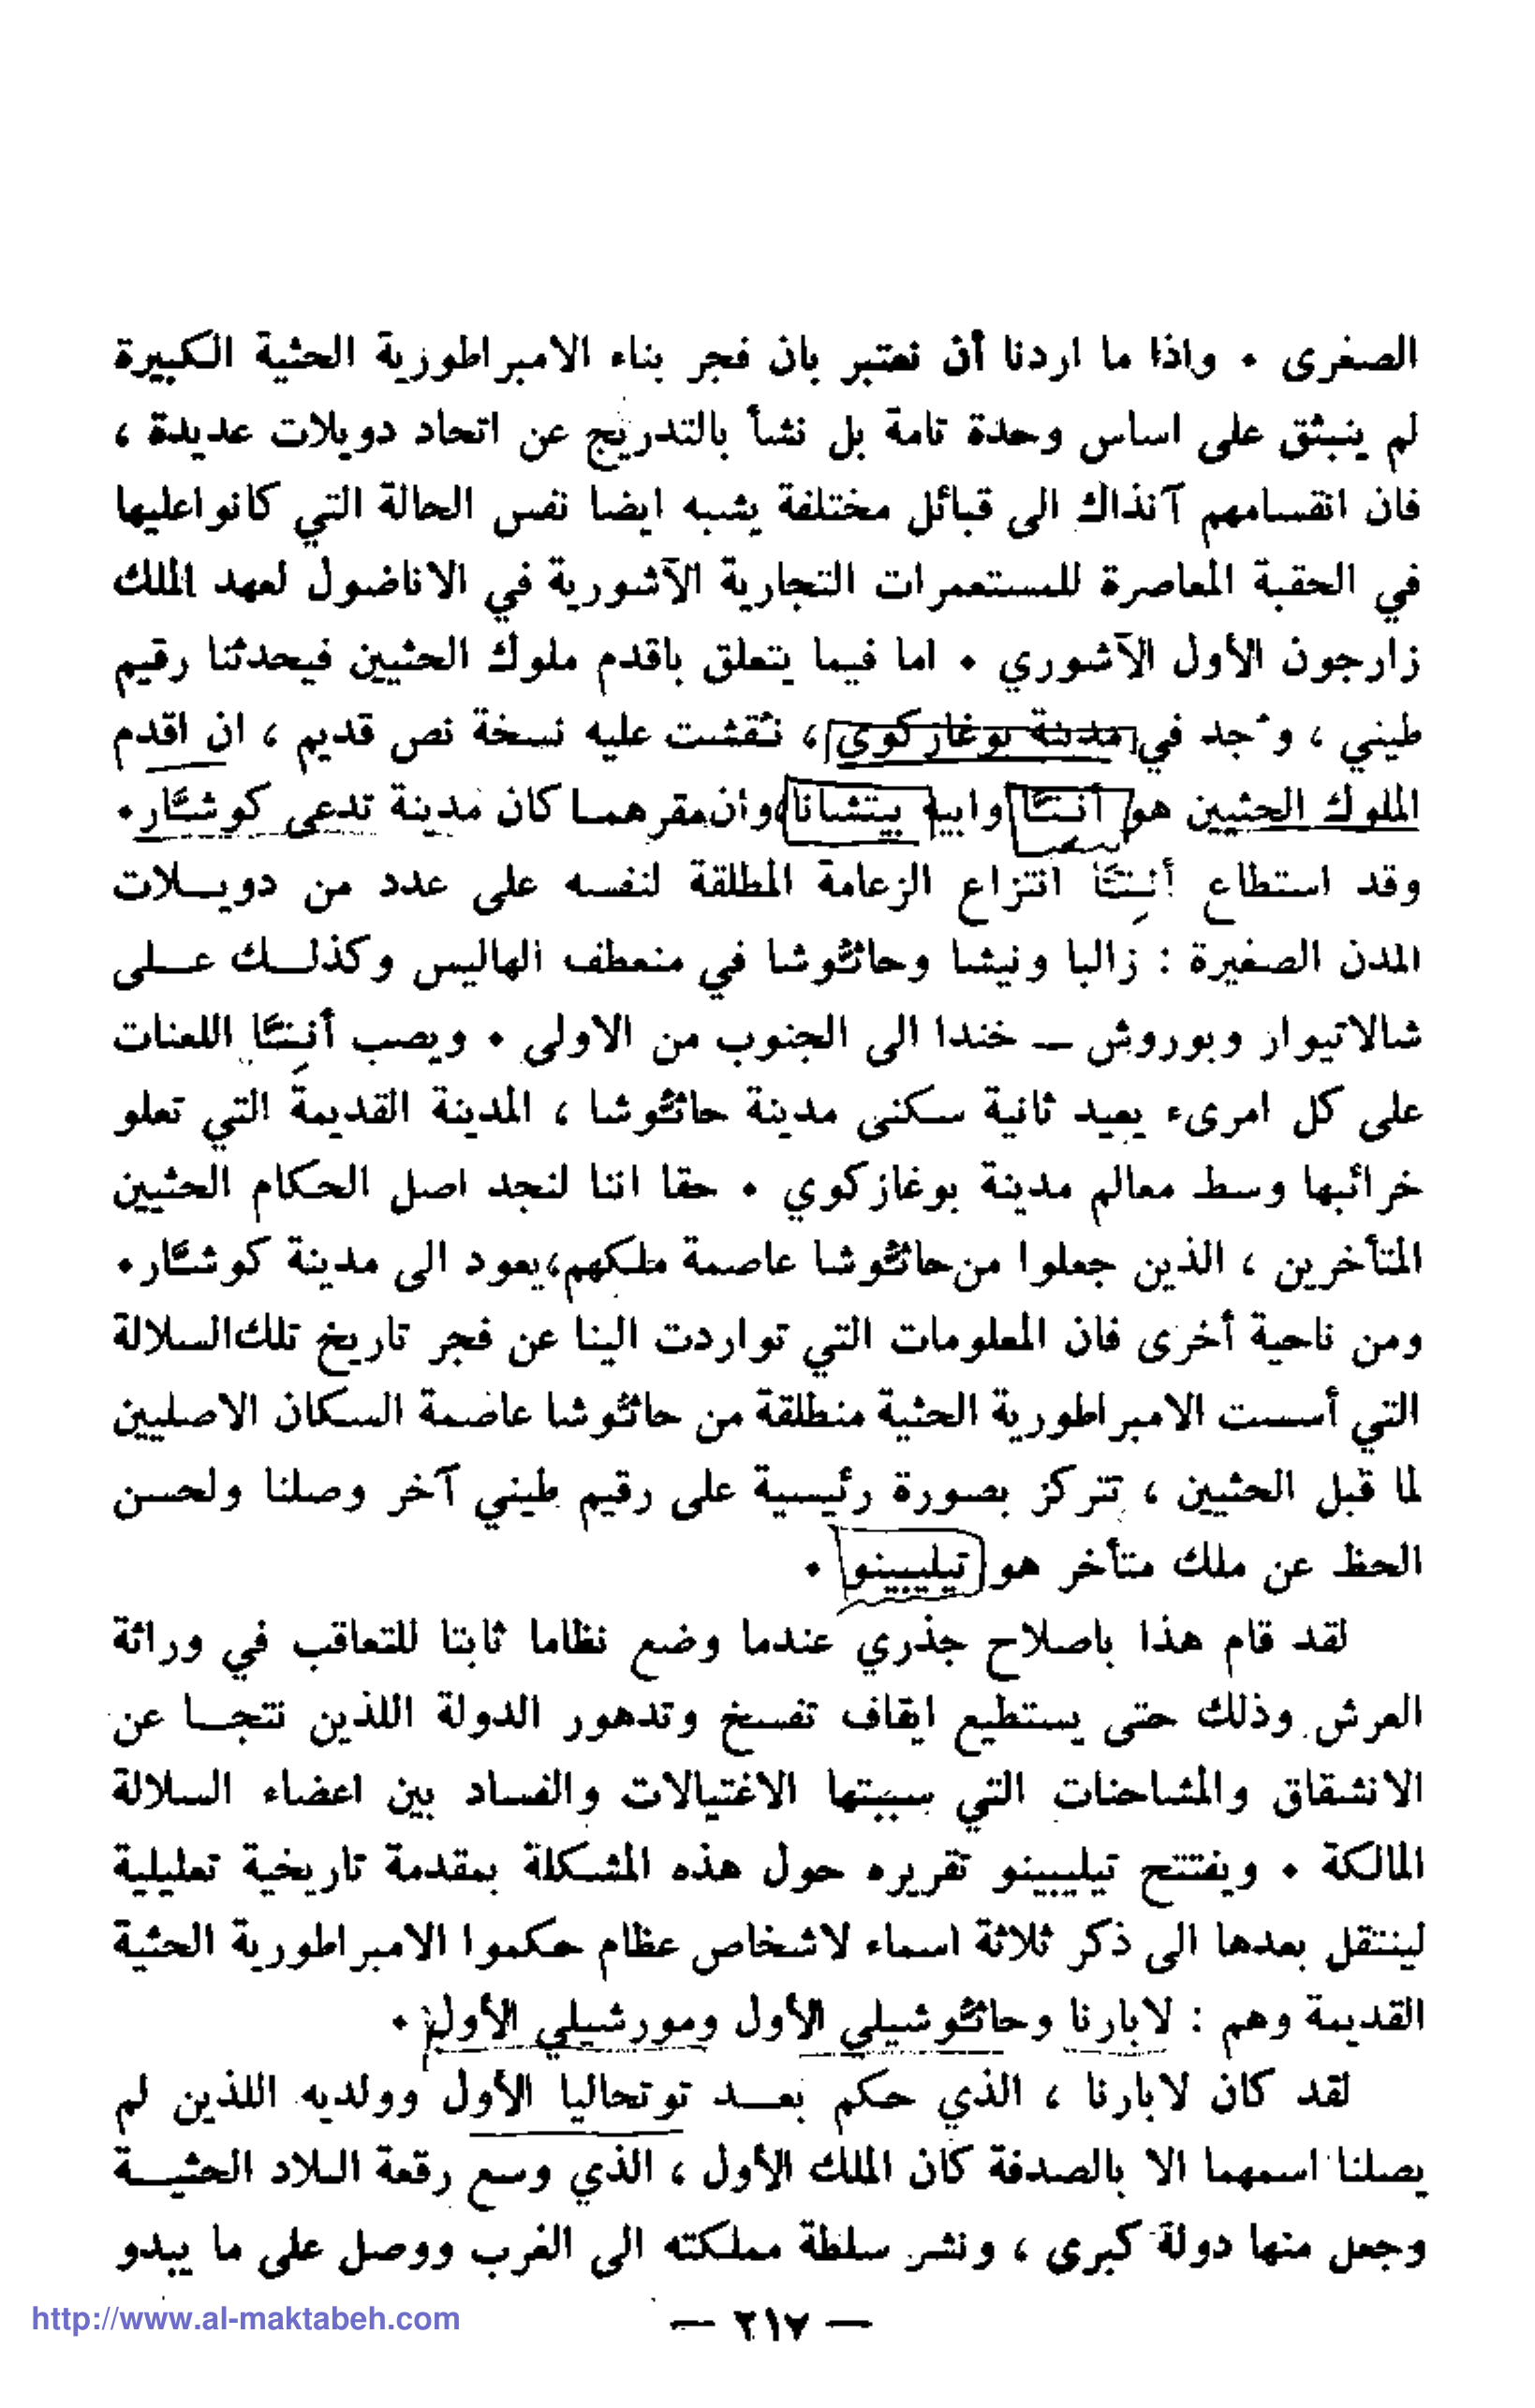 الصغرى . واذا ما اردنا أن نعتبر بان فجر بناء الامبراطورية الحثية الكبيرة
لم ينبثق على اساس وحدة تامة بل نشأ بالتدريج عن اتحاد دويلات عديدة ،
فان انقسامهم آنذاك الى قبائل مختلفة يشبه ايضا نفس الحالة التي كانوا عليها
في الحقبة المعاصرة للمستعمرات التجارية الآشورية في الاناضول لعهد الملك
زارجون الأول الآشوري . اما فيما يتعلق باقدم ملوك الحثيين فيحدثنا رقيم
طيني ، وُجد في مدينة بوغازكوي ، نُقشت عليه نسخة نص قديم ، ان اقدم
الملوك الحثيين هو أنتّا وابيه بيتشانا ، وان مقرهما كان مدينة تدعى كوشّار .
وقد استطاع أنِتّا انتزاع الزعامة المطلقة لنفسه على عدد من دويــلات
المدن الصغيرة : زالبا ونيشا وحاتّوشا في منعطف الهاليس وكذلــك عــلى
شالاتيوار وبوروش ــ خندا الى الجنوب من الاولى . ويصب أنِتّا اللعنات
على كل امرىء يعيد ثانية سكنى مدينة حاتّوشا ، المدينة القديمة التي تعلو
خرائبها وسط معالم مدينة بوغازكوي . حقا اننا لنجد اصل الحكام الحثيين
المتأخرين ، الذين جعلوا من حاتّوشا عاصمة ملكهم ، يعود الى مدينة كوشّار .
ومن ناحية أخرى فان المعلومات التي تواردت الينا عن فجر تاريخ تلك السلالة
التي أسست الامبراطورية الحثية منطلقة من حاتّوشا عاصمة السكان الاصليين
لما قبل الحثيين ، تتركز بصورة رئيسية على رقيم طيني آخر وصلنا ولحسن
الحظ عن ملك متأخر هو تيليبينو .
لقد قام هذا باصلاح جذري عندما وضع نظاما ثابتا للتعاقب في وراثة
العرش وذلك حتى يستطيع ايقاف تفسخ وتدهور الدولة اللذين نتجــا عن
الانشقاق والمشاحنات التي سببتها الاغتيالات والفساد بين اعضاء السلالة
المالكة . ويفتتح تيليبينو تقريره حول هذه المشكلة بمقدمة تاريخية تعليلية
لينتقل بعدها الى ذكر ثلاثة اسماء لاشخاص عظام حكموا الامبراطورية الحثية
القديمة وهم : لابارنا وحاتّوشيلي الأول ومورشيلي الأول .
لقد كان لابارنا ، الذي حكم بعــد توتحاليا الأول وولديه اللذين لم
يصلنا اسمهما الا بالصدفة كان الملك الأول ، الذي وسع رقعة البلاد الحثيــة
وجعل منها دولة كبرى ، ونشر سلطة مملكته الى الغرب ووصل على ما يبدو
— ٢١٧ —
http://www.al-maktabeh.com